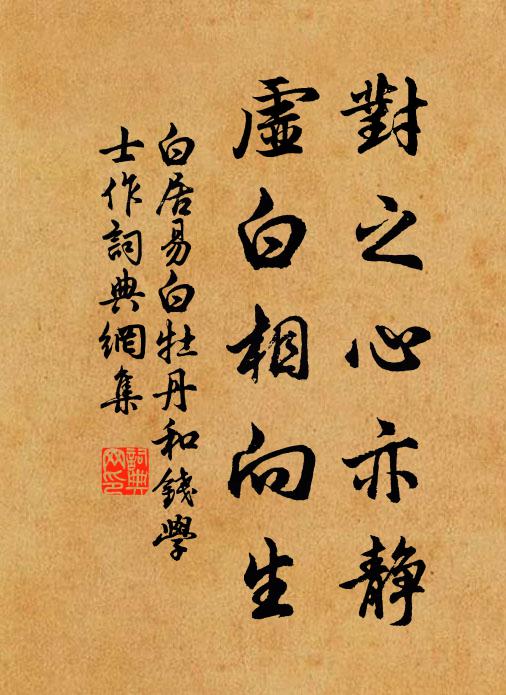 對之心亦静
虛白相向生
白居易白牡丹和錢學
士作詞典網集
詞典網印